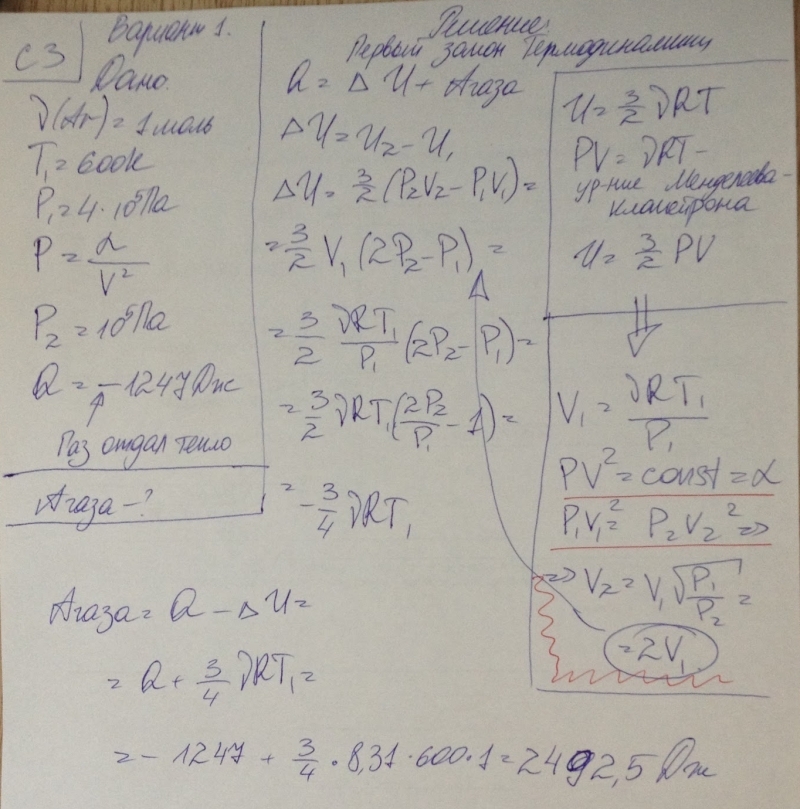 С3
Вариант 1.
Дано:
ν(Ar) = 1 моль
T₁ = 600K
P₁ = 4 · 10⁵ Па
P = α/V²
P₂ = 10⁵ Па
Q = −1247 Дж
Газ отдал тепло
Aгаза - ?
Решение:
Первый закон Термодинамики
Q = ΔU + Aгаза
ΔU = U₂ − U₁
ΔU = 3/2 (P₂V₂ − P₁V₁) =
= 3/2 V₁ (2P₂ − P₁) =
= 3/2 νRT₁/P₁ (2P₂ − P₁) =
= 3/2 νRT₁ (2P₂/P₁ − 1) =
= − 3/4 νRT₁
U = 3/2 νRT
PV = νRT −
ур-ние Менделеева-
клапейрона
U = 3/2 PV
⇓
V₁ = νRT₁/P₁
PV² = const = α
P₁V₁² = P₂V₂² =>
=> V₂ = V₁ √(P₁/P₂) =
= 2V₁
Aгаза = Q − ΔU =
= Q + 3/4 νRT₁ =
= − 1247 + 3/4 · 8,31 · 600 · 1 = 2492,5 Дж